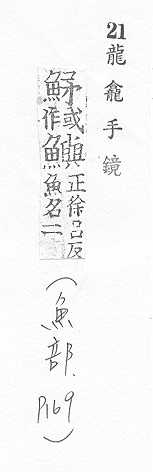 21 龍龕手鏡
魣或作鱮正徐呂反魚名二
(魚部. P169)